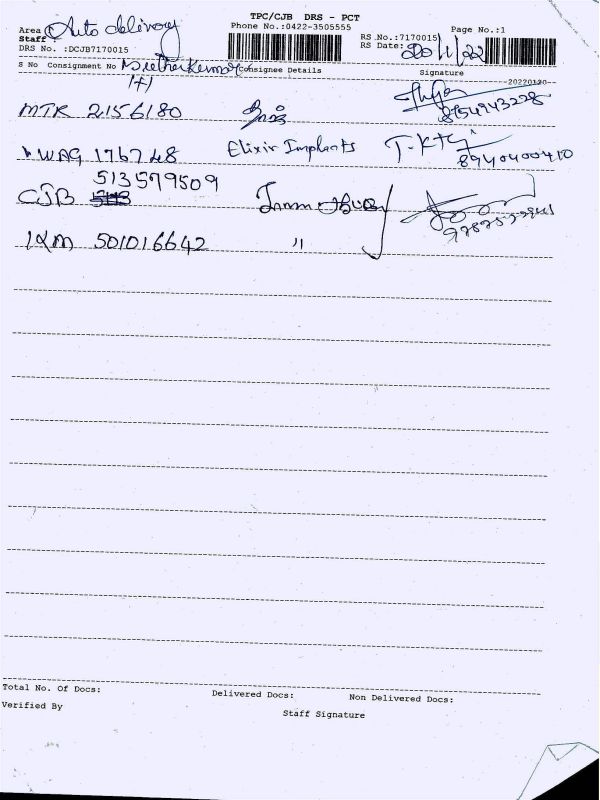 TPC/CJB DRS - PCT
Phone No.:0422-3505555
Page No.:1
Area : Auto delivery
RS No.:7170015
Staff :
RS Date: 20/1/22
DRS No. :DCJB7170015
S No Consignment No Consignee Details Signature
20220120
MTR 2156180 8754943228
WAG 176748 Elixir Implants 8940400410
513579509
CJB
IXM 501016642 "
Total No. Of Docs: Delivered Docs: Non Delivered Docs:
Verified By Staff Signature